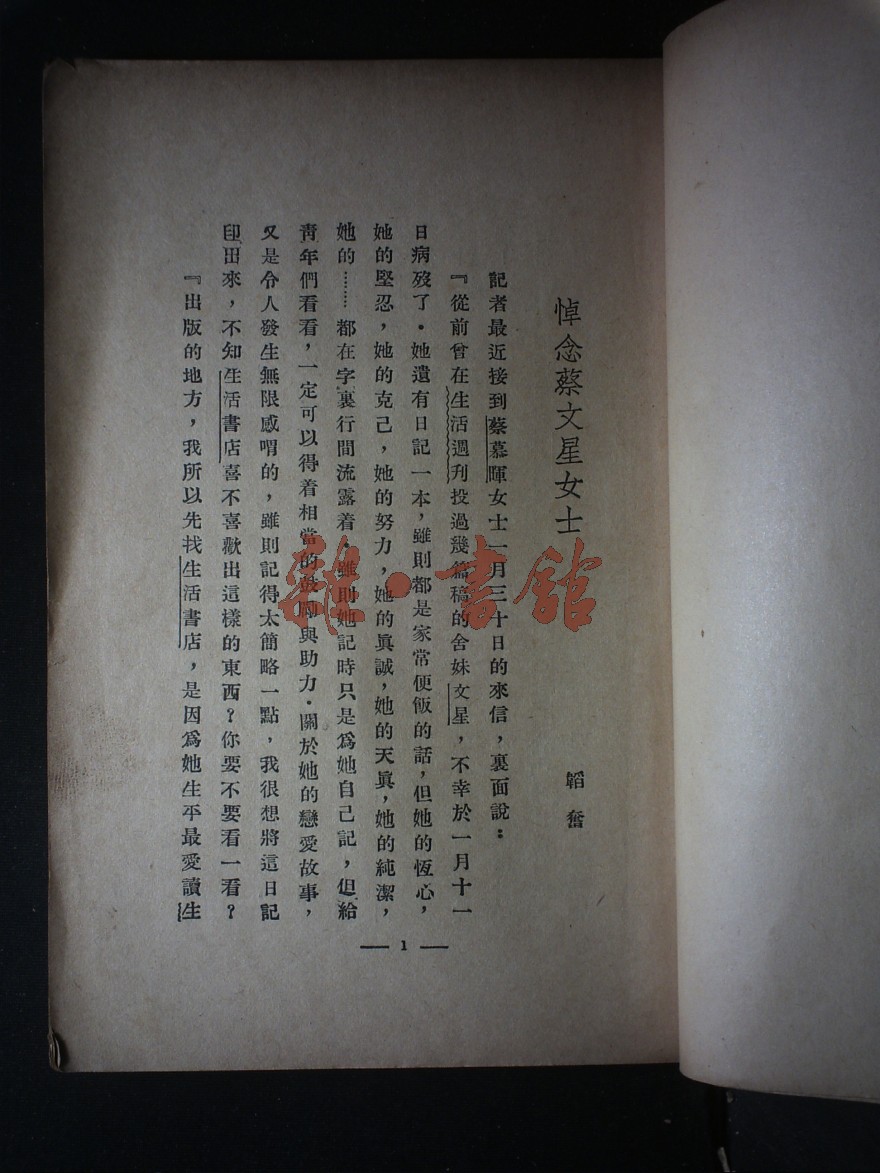 悼念蔡文星女士
韜奮
記者最近接到蔡慕暉女士一月三十日的來信，裏面說：
『從前曾在生活週刊投過幾篇稿的舍妹文星，不幸於一月十一
日病歿了．她遺有日記一本，雖則都是家常便飯的話，但她的恆心，
她的堅忍，她的克己，她的努力，她的眞誠，她的天眞，她的純潔，
她的……都在字裏行間流露着．雖則她記時只是爲她自己記，但給
靑年們看看，一定可以得着相當的鼓勵與助力．關於她的戀愛故事，
又是令人發生無限感喟的，雖則記得太簡略一點，我很想將這日記
印出來，不知生活書店喜不喜歡出這樣的東西？你要不要看一看？
『出版的地方，我所以先找生活書店，是因爲她生平最愛讀生
— 1 —
雜·書館